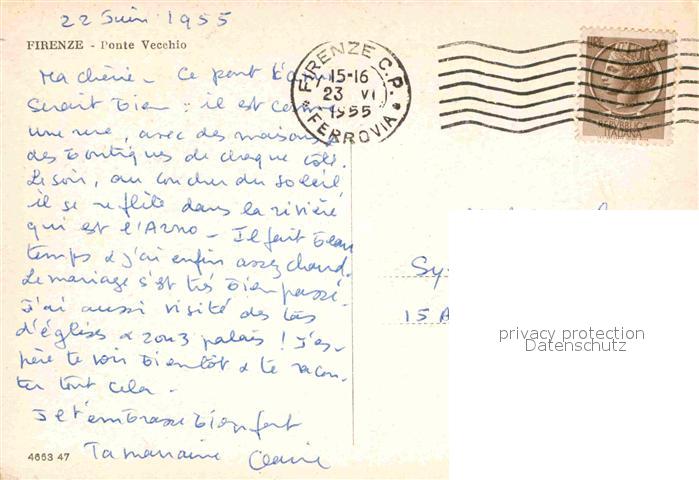 22 Juin 1955
FIRENZE - Ponte Vecchio
Ma chérie - Ce pont t'amu
serait bien : il est comme
une rue, avec des maisons &
des boutiques de chaque côté.
Le soir, au coucher du soleil
il se reflète dans la rivière
qui est l'Arno - Il fait beau
temps & j'ai enfin assez chaud.
Le mariage s'est très bien passé.
J'ai aussi visité des tas
d'églises & 2 ou 3 palais ! J'es-
père te voir bientôt & te racon-
ter tout cela -
Je t'embrasse bien fort
Ta marraine Claire
4663 47
FIRENZE C.P.
15-16
23 VI
1955
FERROVIA
20
REPVBBLICA
ITALIANA
Sy
15 A
privacy protection
Datenschutz